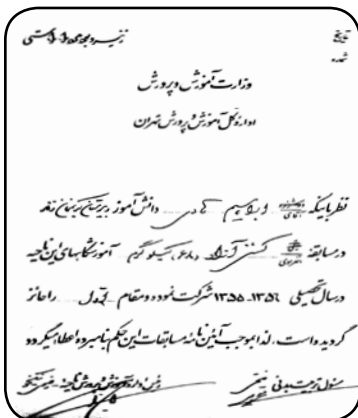 تاریخ
شماره
وزارت آموزش و پرورش
اداره کل آموزش و پرورش تهران
نظر باینکه دوشیزه آقای ابراهیم دانش آموز دبیرستان
در مسابقه کشتی آزاد ۶۸ کیلوگرم آموزشگاههای این ناحیه
در سال تحصیلی ۱۳۵۶-۱۳۵۵ شرکت نموده و مقام اول را حائز
گردیده است. لذا بموجب آئین نامه مسابقات این حکم بنامبرده اعطا میگردد
مسئول تربیت بدنی رئیس اداره آموزش و پرورش ناحیه